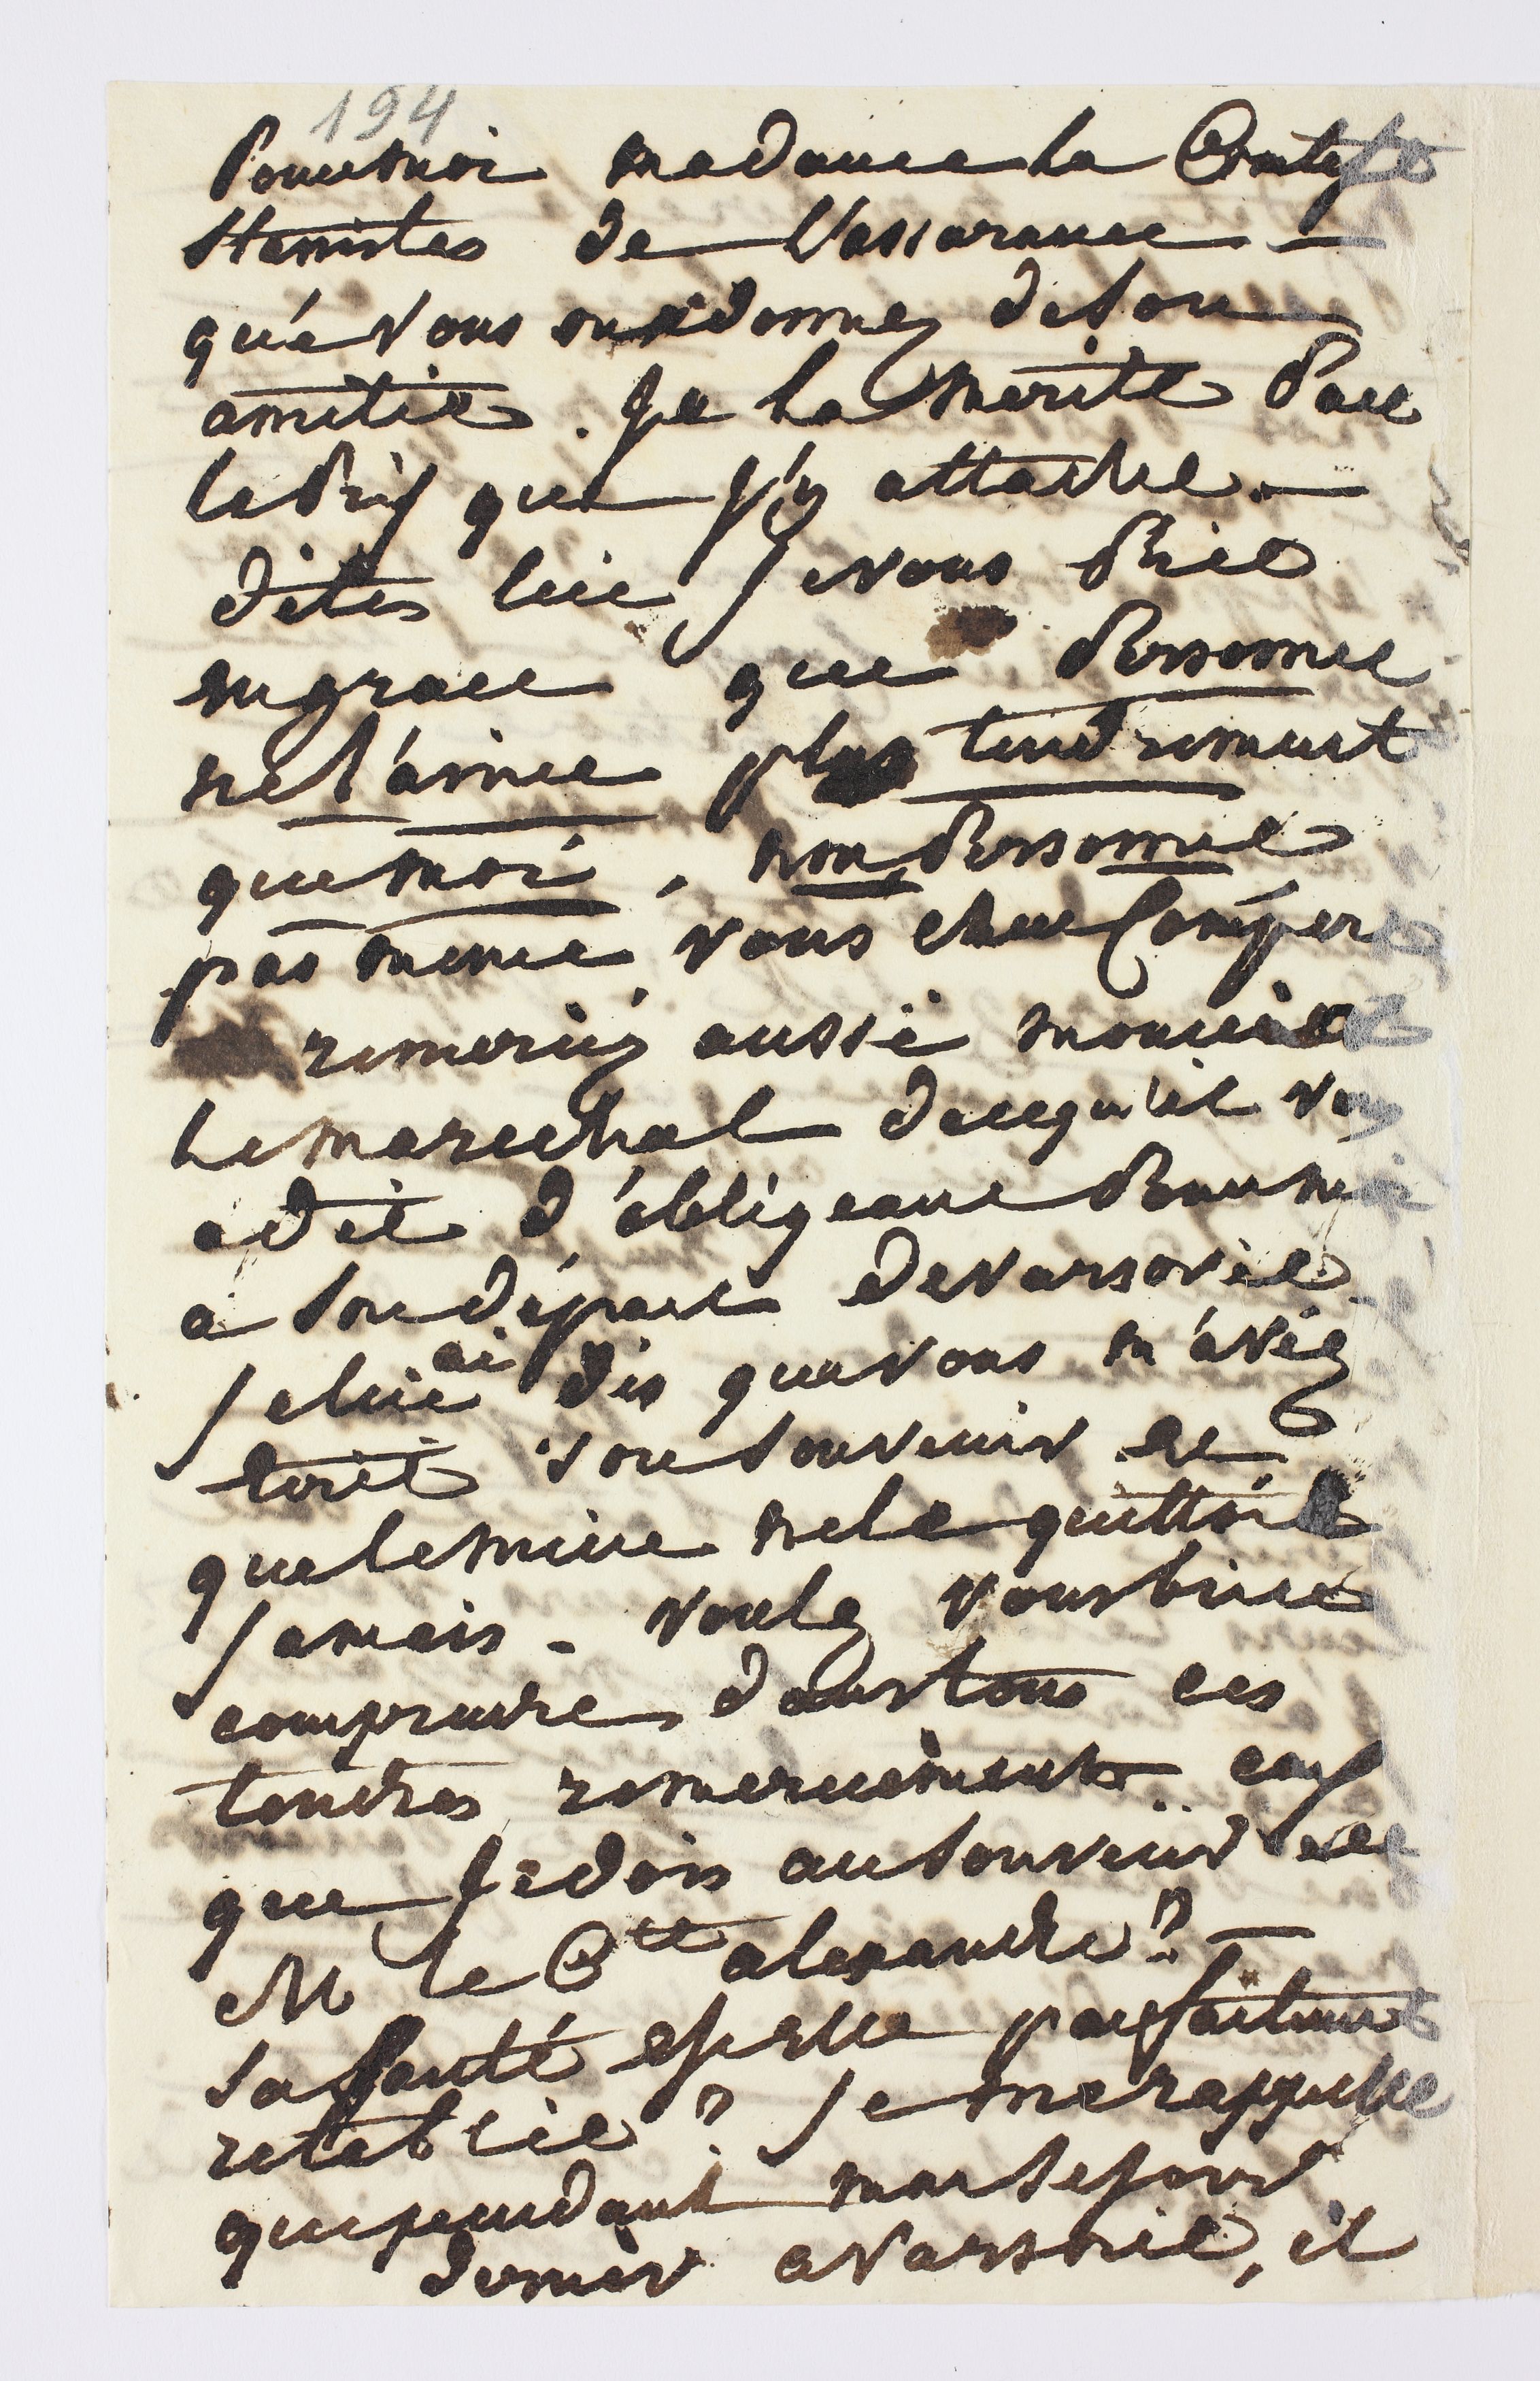 194
Pour moi madame la Comtesse
Stanislas de l'assurance
que vous me donnez de son
amitié. Je la merite par
le prix que j'y attache.
dites lui je vous prie
en grace que personne
ne l'aime plus tendrement
que moi, non personne
pas meme vous cher Compere
remerciez aussi monsieur
le marechal de ce qu'il vous
a dit d'obligeant pour moi
a son départ de varsovie
je lui ai dis que vous m'aviez
écrit son souvenir et
que le mien ne le quittoit
jamais. voulez vous bien
comprendre dans tous ces
tendres remerciements ceux
que je dois au souvenir de
M le Cte alexandre?
sa santé est elle parfaitement
retablie? je me rappelle
que pendant mon sejour
dernier a varsovie, il